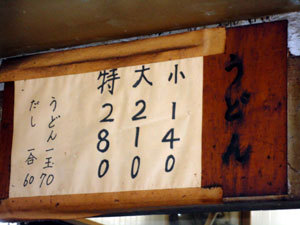 うどん
小 140
大 210
特 280
うどん一玉70
だし 一合60